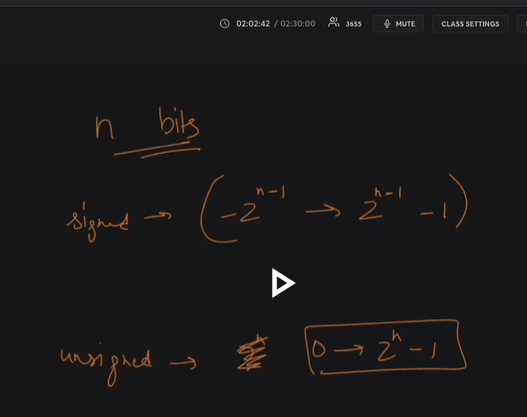 02:02:42 / 02:30:00 3655 MUTE CLASS SETTINGS
n bits
signed → (-2^{n-1} → 2^{n-1} - 1)
unsigned → 0 → 2^n - 1